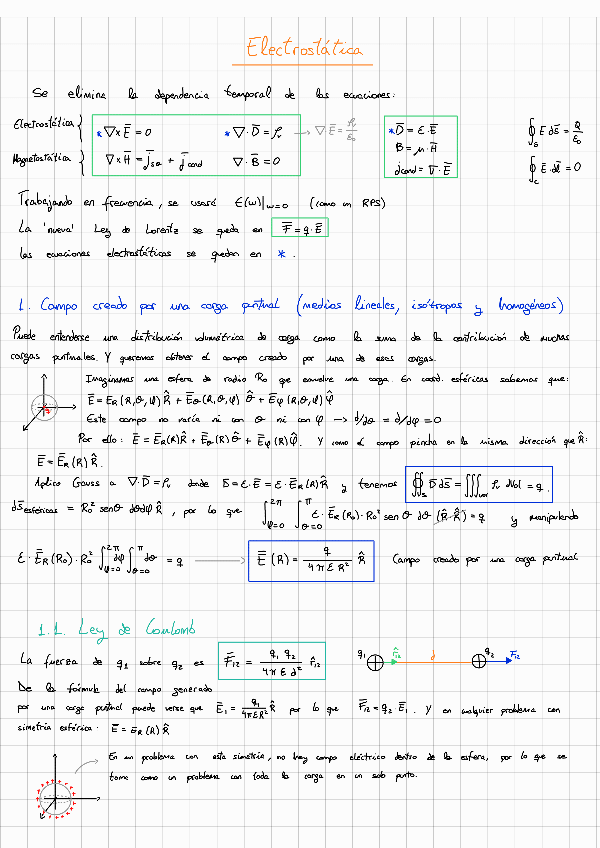 Electrostática
Se elimina la dependencia temporal de las ecuaciones:
Electrostática { * ∇×E̅ = 0 * ∇·D̅ = ρᵥ → ∇E̅ = ρᵥ/ε₀ * D̅ = ε·E̅ ∮ₛ E̅ ds̅ = Q/ε₀
Magnetostática { ∇×H̅ = J̅ + J̅cond ∇·B̅ = 0 B̅ = μ·H̅ ∮c E̅·dl̅ = 0
Jcond = σ·E̅
Trabajando en frecuencia, se usará E(ω)|ω=0 (como en RPS)
La 'nueva' Ley de Lorentz se queda en F̅ = q·E̅
las ecuaciones electrostáticas se quedan en *.
1. Campo creado por una carga puntual (medios lineales, isótropos y homogéneos)
Puede entenderse una distribución volumétrica de carga como la suma de la contribución de muchas
cargas puntuales. Y queremos obtener el campo creado por una de esas cargas.
Imaginamos una esfera de radio R₀ que envuelve una carga. En coord. esféricas sabemos que:
E̅ = E_R(R,θ,φ) R̂ + E_θ(R,θ,φ) θ̂ + E_φ(R,θ,φ) φ̂
Este campo no varía ni con θ ni con φ → d/dθ = d/dφ = 0
Por ello: E̅ = E_R(R)R̂ + E_θ(R)θ̂ + E_φ(R)φ̂. Y como el campo pincha en la misma dirección que R̂:
E̅ = E̅_R(R) R̂.
Aplico Gauss a ∇·D̅ = ρᵥ donde D̅ = ε·E̅ = ε·E̅_R(R)R̂ y tenemos ∯ₛ D̅ ds̅ = ∭vol ρᵥ dVol = q.
ds̅ esféricas = R₀² senθ dθdφ R̂, por lo que ∫_{φ=0}^{2π} ∫_{θ=0}^{π} ε·E̅_R(R₀)·R₀² sen θ dθ (R̂·R̂) = q y manipulando
ε·E̅_R(R₀)·R₀² ∫_{φ=0}^{2π} dφ ∫_{θ=0}^{π} dθ = q → E̅(R) = q/(4πεR²) R̂ Campo creado por una carga puntual
1.1. Ley de Coulomb
La fuerza de q₁ sobre q₂ es F̅₁₂ = q₁ q₂/(4πε d²) r̂₁₂ q₁ r̂₁₂ d q₂ F₁₂
De la fórmula del campo generado
por una carga puntual puede verse que E̅₁ = q₁/(4πεR²) R̂ por lo que F̅₁₂ = q₂·E̅₁. Y en cualquier problema con
simetría esférica: E̅ = E̅_R(R) R̂
En un problema con esta simetría, no hay campo eléctrico dentro de la esfera, por lo que se
toma como un problema con toda la carga en un solo punto.